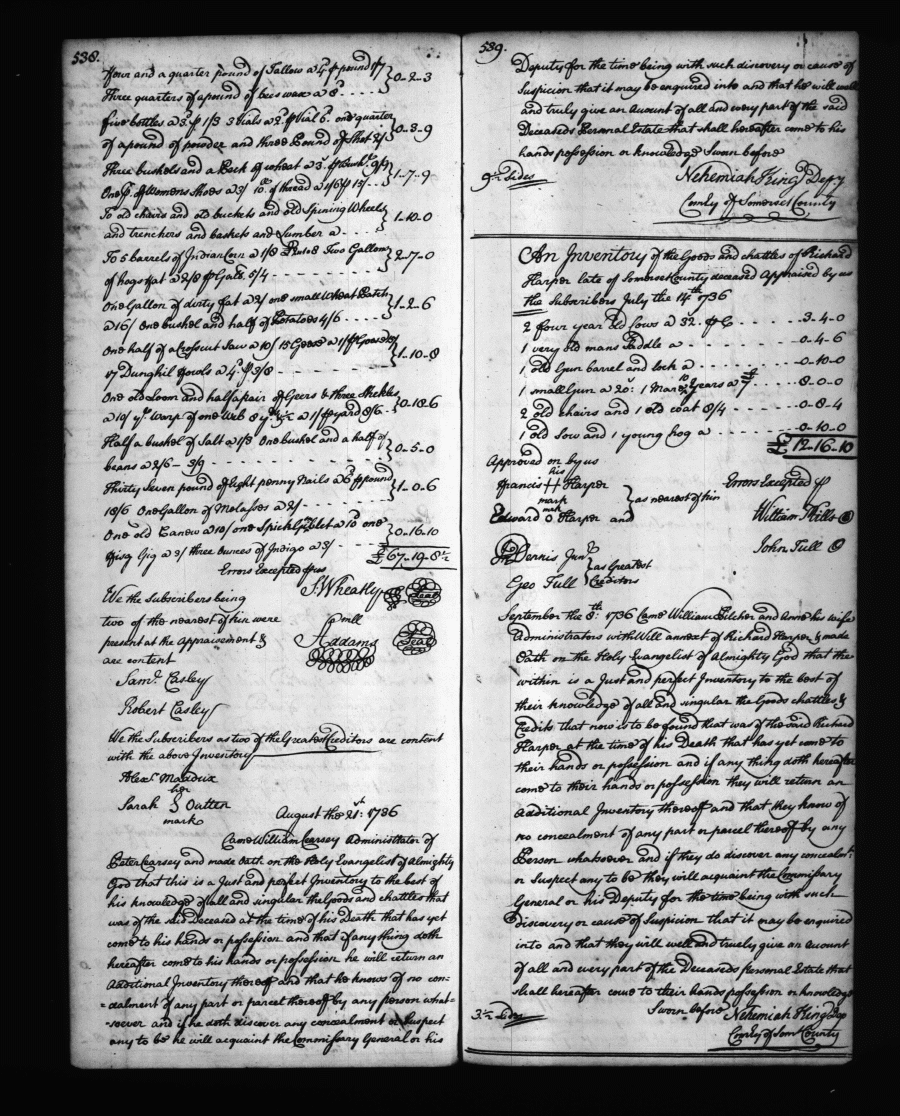 538.
four and a quarter pound of Tallow a 4d p pound 17
Three quarters of a pound of bees wax a 8d . . . . } 0-2-3
five bottles a 3d p 1/3 3 Vials a 2d p Vial 6d one quarter
of a pound of powder and three Pound of Shot 2/ } 0-3-9
Three bushels and a Peck of wheat a 3/ p Bushl 9/9
One pr of Womens Shoes a 3/ 10 lb of thread a 1/6 p 15/ } 1-7-9
To old chairs and old buckets and old Spining Wheels
and trenchers and baskets and Lumber a . . . } 1-10-0
To 5 barrels of Indian Corn a 1/8 Two Gallons
of hogs fat a 2/8 p Gall. 5/4 } 2-7-0
One Gallon of dirty fat a 2/ one small Wheat Patch
a 16/ One bushel and half of Potatoes 4/6 . . . . } 1-2-6
One half of a Croscut Saw a 10/ 15 Geese a 1/ p Goose
17 Dunghil fowls a 4d 3/8 } 1-10-8
One old Loom and half a pair of Geers & three Shekles
a 10/ yd Warp of one Web 8 yds ½ a 1/ p yard 8/6 . } 0-18-6
Half a bushel of Salt a 1/3 One bushel and a half of
beans a 2/6 - 3/9 } 0-5-0
Thirty Seven pound of Eight penny Nails a 6d p pound
18/6 One Gallon of Molasses a 2/ } 1-0-6
One old Canew a 10/ one a 10d one
Gig a 3/ three ounces of Indigo a 3/ . . . } 0-16-10
£67-19-8½
Errors Excepted p us
We the Subscribers being
S. Wheatly Seal
two of the nearest of kin were
present at the Appraisement &
Wm Addams Seal
are content
Saml. Casley
Robert Casley
We the Subscribers as two of the Greatest Creditors are content
with the above Inventory
Alexr Maddux
her
Sarah S Outten
mark
August the 21st: 1736
Came William Kearsey Administrator of
Peter Kearsey and made Oath on the Holy Evangelist of Almighty
God that this is a Just and perfect Inventory to the best of
his knowledge of all and singular the Goods and chattles that
was of the said deceased at the time of his Death that has yet
come to his hands or possession and that if any thing doth
hereafter come to his hands or possession he will return an
Additional Inventory thereof and that he knows of no con=
=cealment of any part or parcel thereof by any person what=
=soever and if he doth discover any concealment or Suspect
any to be he will acquaint the Commissary General or his
539.
Deputy for the time being with such discovery or cause of
Suspicion that it may be enquired into and that he will well
and truly give an Account of all and every part of the said
Deceaseds Personal Estate that shall hereafter come to his
hands possession or knowledge Sworn before
Nehemiah King Depy
Comry of Somerset County
9½ Sides
An Inventory of the Goods and chattles of Richard
Harper late of Somerset County deceased Appraised by us
the Subscribers July the 14th 1736
2 four year old Cows a 32. p C . . . . . 3-4-0
1 very old mans Saddle a . . . . . 0-4-6
1 old Gun barrel and lock a . . . . . 0-10-0
1 small Gun a 20/: 1 Mare 10 Years a £7 . . . . 8-0-0
2 old chairs and 1 old coat 8/4 . . . . . 0-8-4
1 old Sow and 1 young hog a . . . . . 0-10-0
£12-16-10
Approved on by us
his
Francis H Harper
mark
} as nearest of kin
Errors Excepted p
mark
Edward O Harper and
William Mills
John Tull
Dennis Junr
} as Greatest
Creditors
Geo Tull
September the 8th: 1736 Came William Pilcher and Anne his wife
Administrators with Will annext of Richard Harper & made
Oath on the Holy Evangelist of Almighty God that the
within is a Just and perfect Inventory to the best of
their knowledge of all and singular the Goods chattles &
Credits that now is to be found that was of the said Richard
Harper at the time of his Death that has yet come to
their hands or possession and if any thing doth hereafter
come to their hands or possession they will return an
Additional Inventory thereof and that they know of
no concealment of any part or parcel thereof by any
Person whatsoever and if they do discover any concealmt
or Suspect any to be they will acquaint the Commissary
General or his Deputy for the time being with such
Discovery or cause of Suspicion that it may be enquired
into and that they will well and truely give an Account
of all and every part of the Deceaseds personal Estate that
shall hereafter come to their hands possession or knowledge
Sworn before Nehemiah King Dep
Comry of Som County
3½ Sides